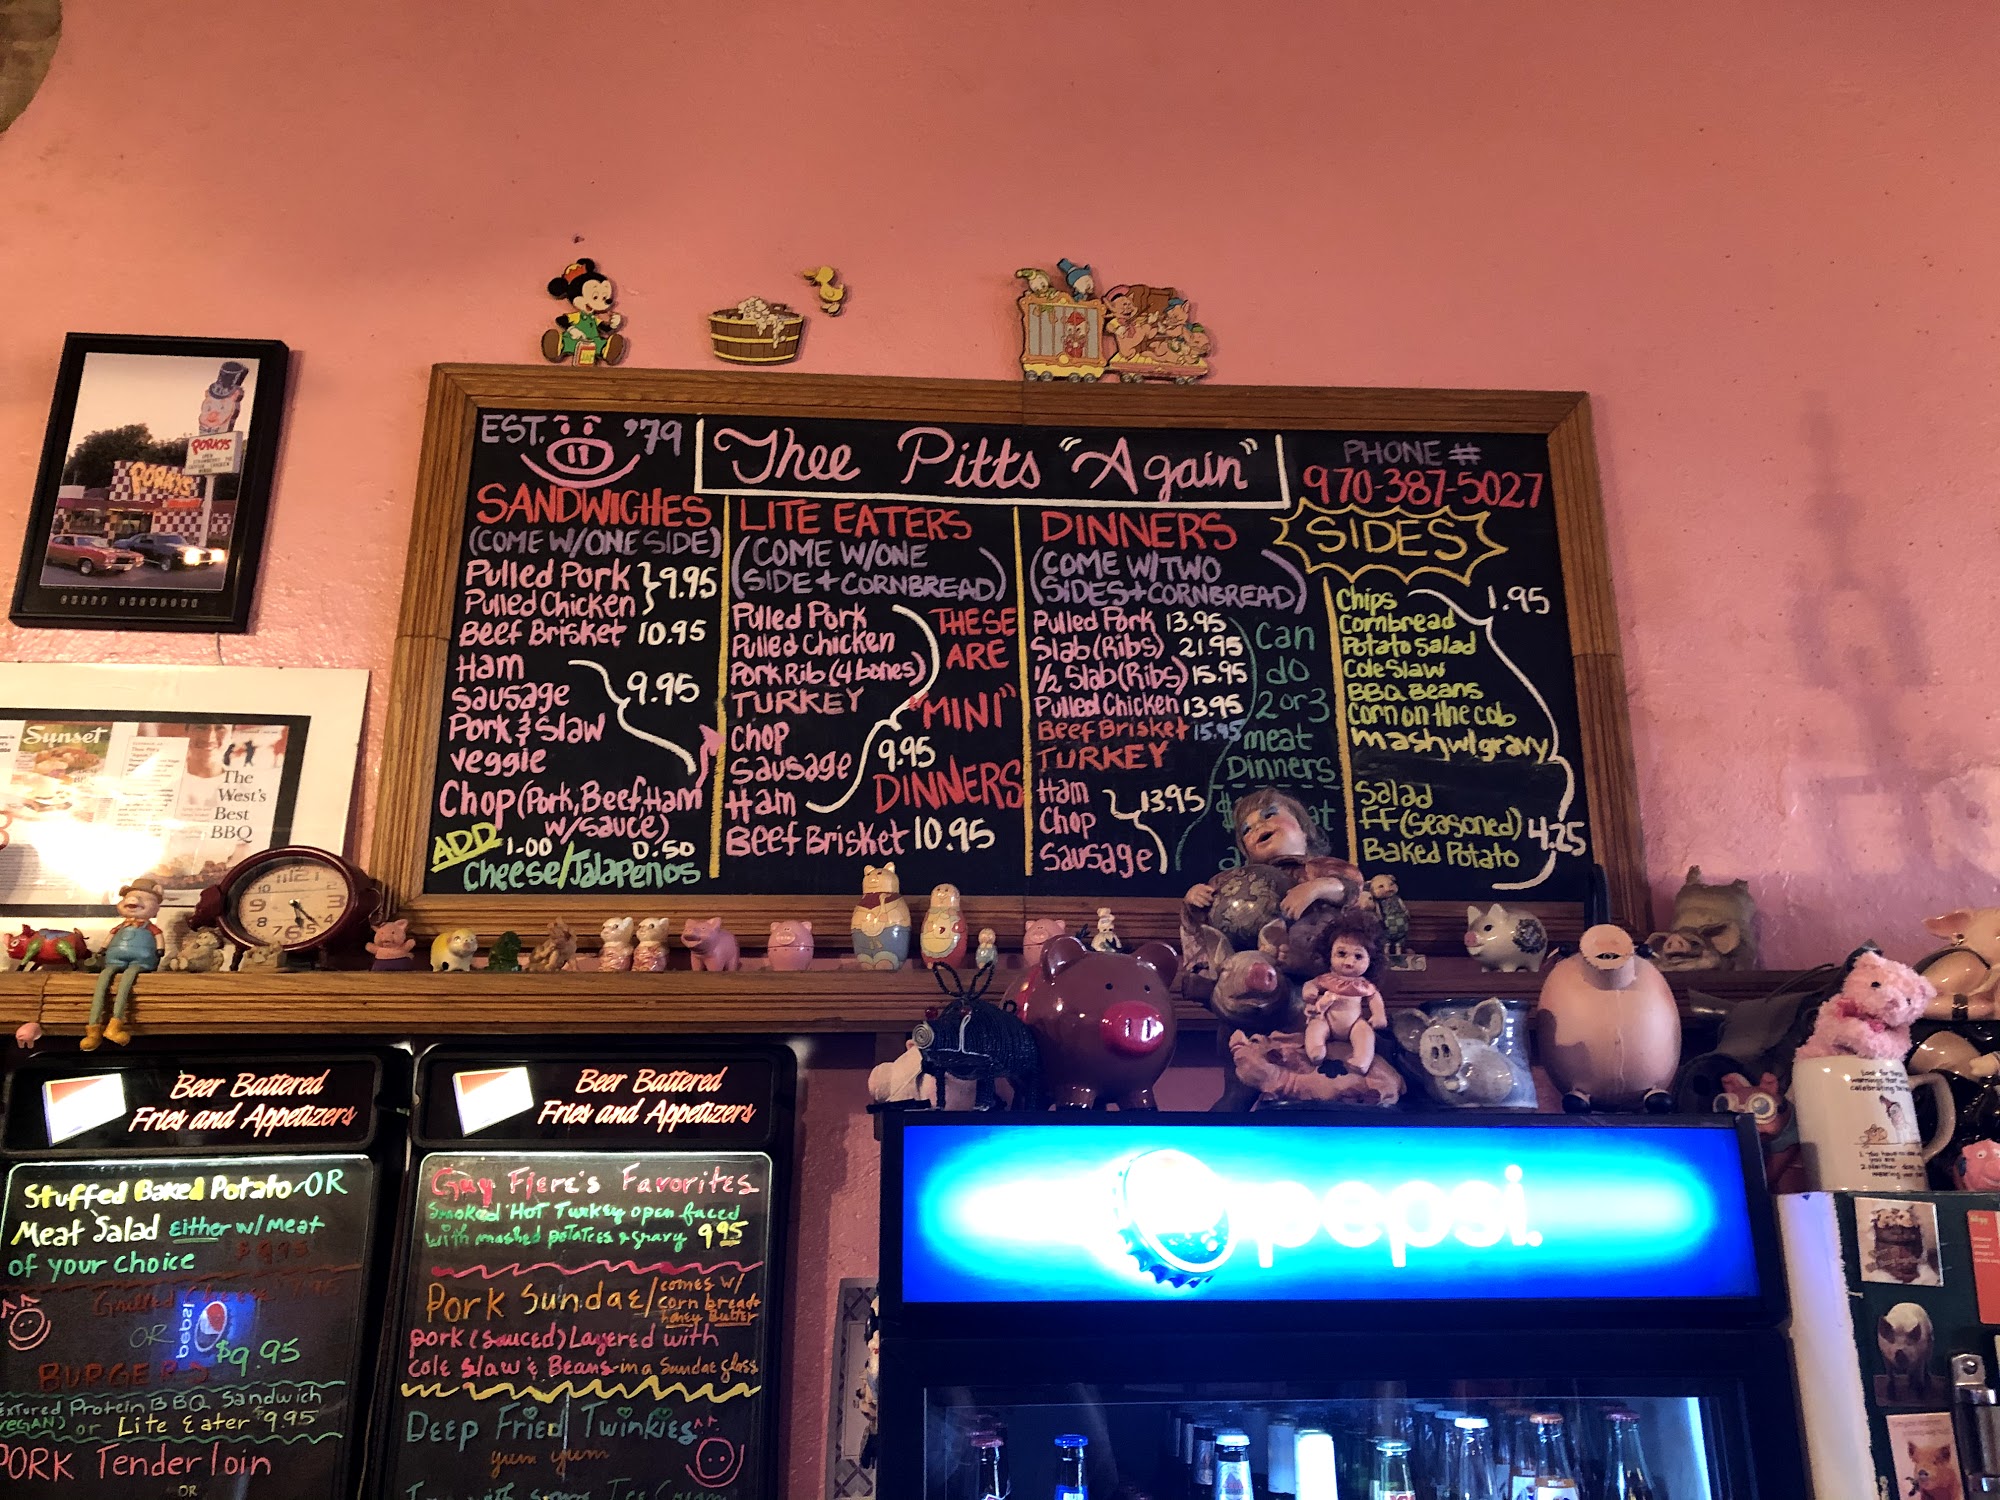 EST. '79
Thee Pitts "Again"
PHONE #
970-387-5027
SANDWICHES
(COME W/ONE SIDE)
Pulled Pork
Pulled Chicken
9.95
Beef Brisket 10.95
Ham
Sausage
Pork & Slaw
veggie
9.95
Chop (Pork, Beef, Ham
w/sauce)
ADD 1.00 0.50
Cheese/Jalapenos
LITE EATERS
(COME W/ONE
SIDE + CORNBREAD)
Pulled Pork
Pulled Chicken
Pork Rib (4 bones)
TURKEY
Chop
Sausage
Ham
9.95
Beef Brisket 10.95
THESE
ARE
"MINI"
DINNERS
DINNERS
(COME W/TWO
SIDES + CORNBREAD)
Pulled Pork 13.95
Slab (Ribs) 21.95
1/2 Slab (Ribs) 15.95
Pulled Chicken 13.95
Beef Brisket 15.95
TURKEY
Ham
Chop
Sausage
13.95
Can
do
2 or 3
meat
Dinners
SIDES
Chips
Cornbread
Potato Salad
Cole Slaw
BBQ Beans
Corn on the cob
Mash w/gravy
1.95
Salad
FF (Seasoned)
Baked Potato
4.25
PORKYS
PORKYS
Sunset
The
West's
Best
BBQ
Beer Battered
Fries and Appetizers
Stuffed Baked Potato OR
Meat Salad Either w/ meat
of your choice $9.95
Grilled Cheese 7.95
OR
pepsi
BURGERS $9.95
Protein BBQ Sandwich
(VEGAN) or Lite Eater $9.95
PORK Tenderloin
OR
Beer Battered
Fries and Appetizers
Guy Fiere's Favorites
Smoked Hot Turkey open faced
with mashed potatoes & gravy 9.95
Pork Sundae/comes w/
corn bread +
honey Butter
pork (sauced) Layered with
cole slaw & Beans-in a Sundae glass
Deep Fried Twinkies
yum yum
pepsi.